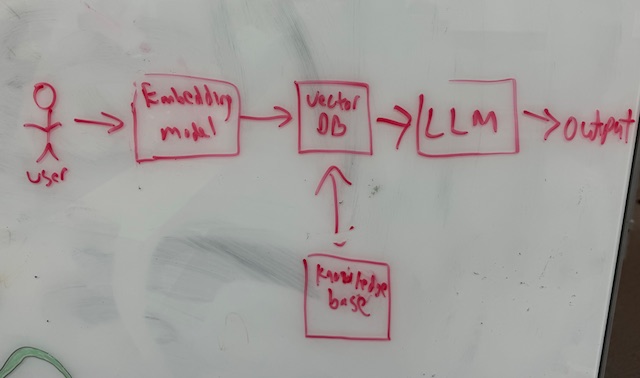 user
Embedding
model
vector
DB
LLM
output
knowledge
base